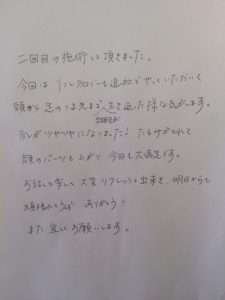 二回目の施術して頂きました。
今回は リフレクソロジーも追加でやっていただいて
頭から足のつま先まで 生き返った様な気がします。
肌がツヤツヤになりました! たるみがとれて
顔のパーツも上がり 今回も大満足です。
お話しも楽しく 大変リフレッシュ出来き、明日からも
頑張れそうです ありがとう!!
また宜しくお願いします。